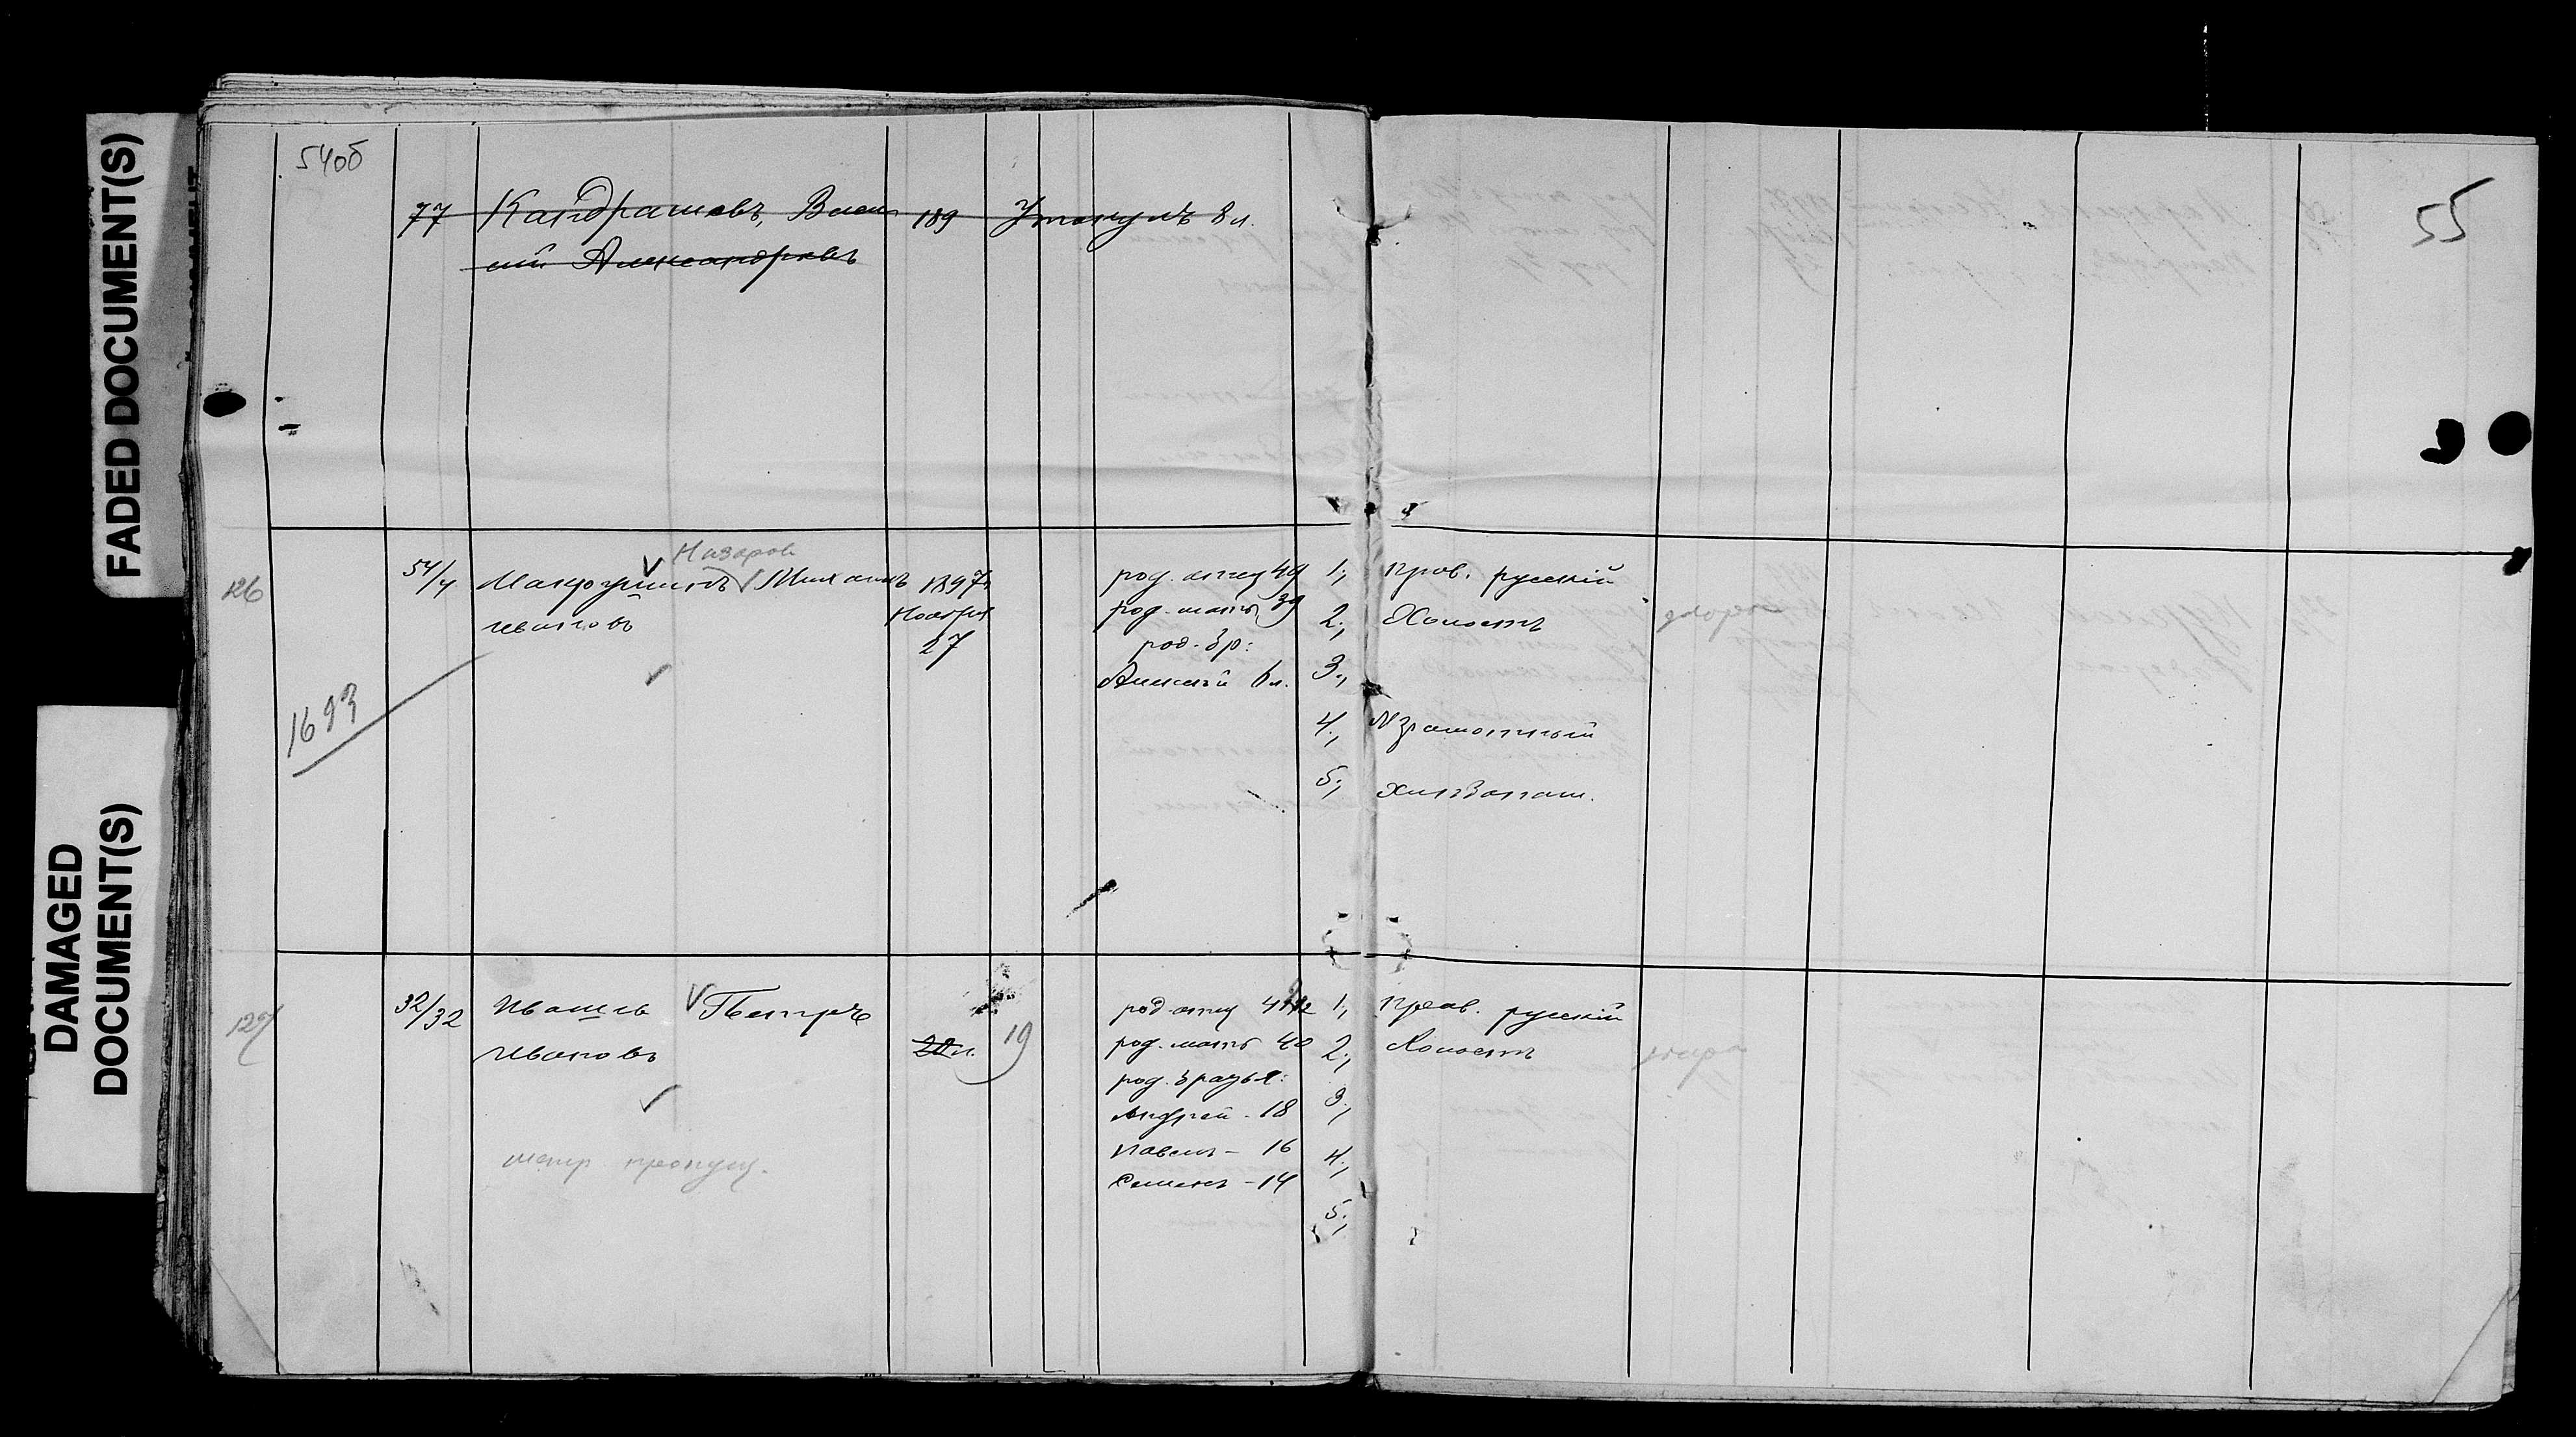 FADED DOCUMENT(S)
DAMAGED
DOCUMENT(S)
54об
55
77 Кандрашовъ, Васи 189 Утонулъ 8 л.
лій Александровъ
126
54/4 Михаилъ 1897г.
Назаров
Ивановъ Ноября
27
1693
род. отец 49
род. мать 39
род. бр:
Алексѣй 6 л.
1, прав. русскій
2, Холостъ
3,
4, Н грамотный
5, Хлѣбопаш.
127
32/32 Ивашевъ Петръ
Ивановъ 19
род. отец 42
род. мать 40
род. братья:
Андрей - 18
Павелъ - 16
Семенъ - 14
1, прав. русскій
2, Холостъ
3,
4,
5,